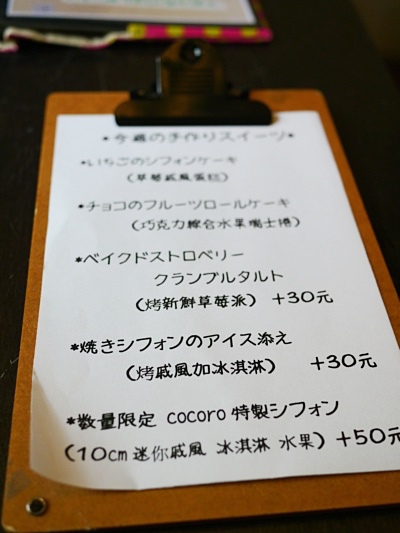 *今週の手作りスイーツ*
*いちごのシフォンケーキ
(草莓戚風蛋糕)
*チョコのフルーツロールケーキ
(巧克力綜合水果瑞士捲)
*ベイクドストロベリー
クランブルタルト
(烤新鮮草莓派) +30元
*焼きシフォンのアイス添え
(烤戚風加冰淇淋) +30元
*数量限定 cocoro 特製シフォン
(10cm迷你戚風 冰淇淋 水果) +50元